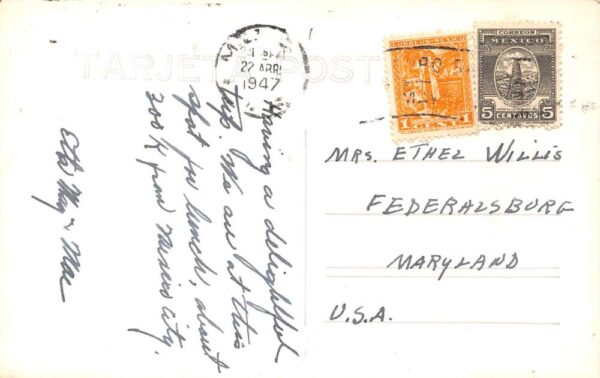 TARJETA POST
22 ABR
1947
CORREOS MEXICO
1 1
CORREOS
MEXICO
5 CENTAVOS 5
Having a delightful
trip. We are at this
spot for lunch, about
300 K from Mexico City.
Etta May & Mac
MRS. ETHEL WILLIS
FEDERALSBURG
MARYLAND
U.S.A.